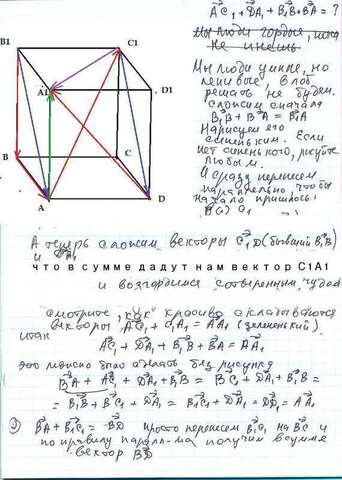 AC₁ + DA₁ + B₁B + BA = ?
Мы люди гордые, 
не 
B1
C1
A1
D1
B
C
A
D
Мы люди умные, но
ленивые, в лоб
решать не будем.
сложим сначала
B₁B + BA = B₁A
Нарисуем его
синеньким. Если
нет синенького, рисуйте
любым.
И сразу перенесем
параллельно, чтобы
начало пришлось
в C₁
А теперь сложим векторы C₁D (бывший B₁A)
и DA₁
что в сумме дадут нам вектор C1A1
и возгордимся сотворенным чудом
смотрите, как красиво складываются
векторы AC₁ + C₁A₁ = AA₁ (зелененький)
итак
AC₁ + DA₁ + B₁B + BA = AA₁
это можно было сделать без рисунка
BA + AC₁ + DA₁ + B₁B = BC₁ + DA₁ + B₁B =
= B₁B + BC₁ + DA₁ = B₁C₁ + DA₁ = DD₁ = AA₁
2) BA + B₁C₁ = BD просто перенесем B₁C₁ на BC и
по правилу паралл-ма получим в сумме
вектор BD